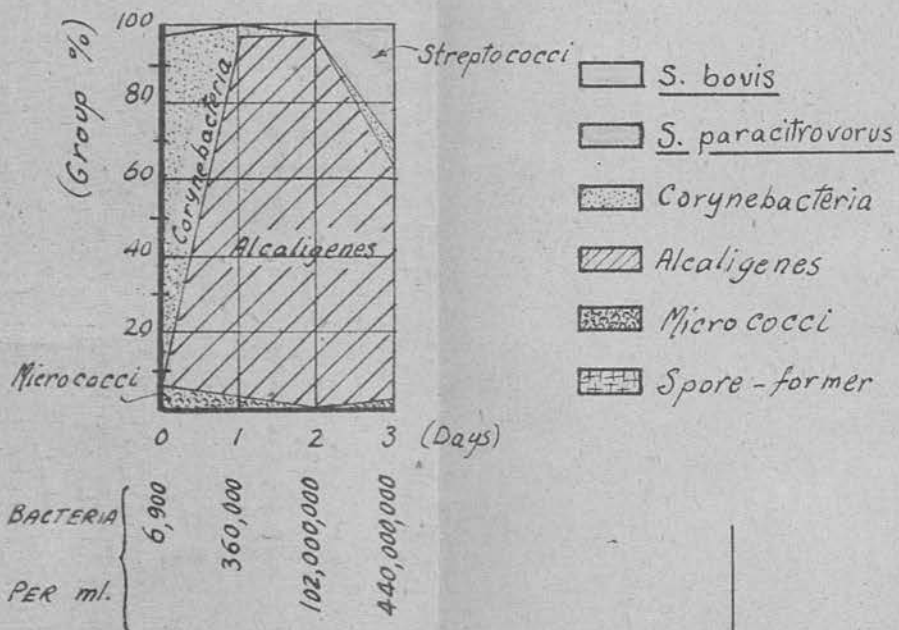 (Group %)
100
80
60
40
20
Corynebacteria
Alcaligenes
Streptococci
Micrococci
0 1 2 3 (Days)
BACTERIA
PER ml.
6,900
360,000
102,000,000
440,000,000
S. bovis
S. paracitrovorus
Corynebacteria
Alcaligenes
Micrococci
Spore-former